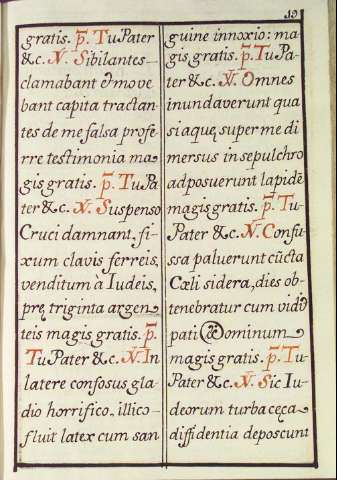 19
gratis. p. Tu Pater
&c. V. Sibilantes
clamabant & move
bant capita tractan
tes de me falsa profe
rre testimonia ma
gis gratis. p. Tu Pa
ter &c. V. Suspenso
Cruci damnant, fi-
xum clavis ferreis,
venditum à Iudeis,
pręˍ triginta argen
teis magis gratis. p.
Tu Pater &c. V. In
latere confosus gla
dio horrifico, illico
fluit latex cum san
guine innoxio: ma
gis gratis, p. Tu Pa-
ter &c. V. Omnes
inundaverunt qua
si aquę super me di
mersus in sepulchro
ad posuerunt lapidē
magis gratis. p. Tu-
Pater &c. V. Confu
ssa paluerunt cūcta
Cœli sidera, dies ob-
tenebratur cum vidīt
pati Dominum
magis gratis. p. Tu-
Pater &c. V. Sic Iu-
deorum turba cęca
diffidentia deposcunt